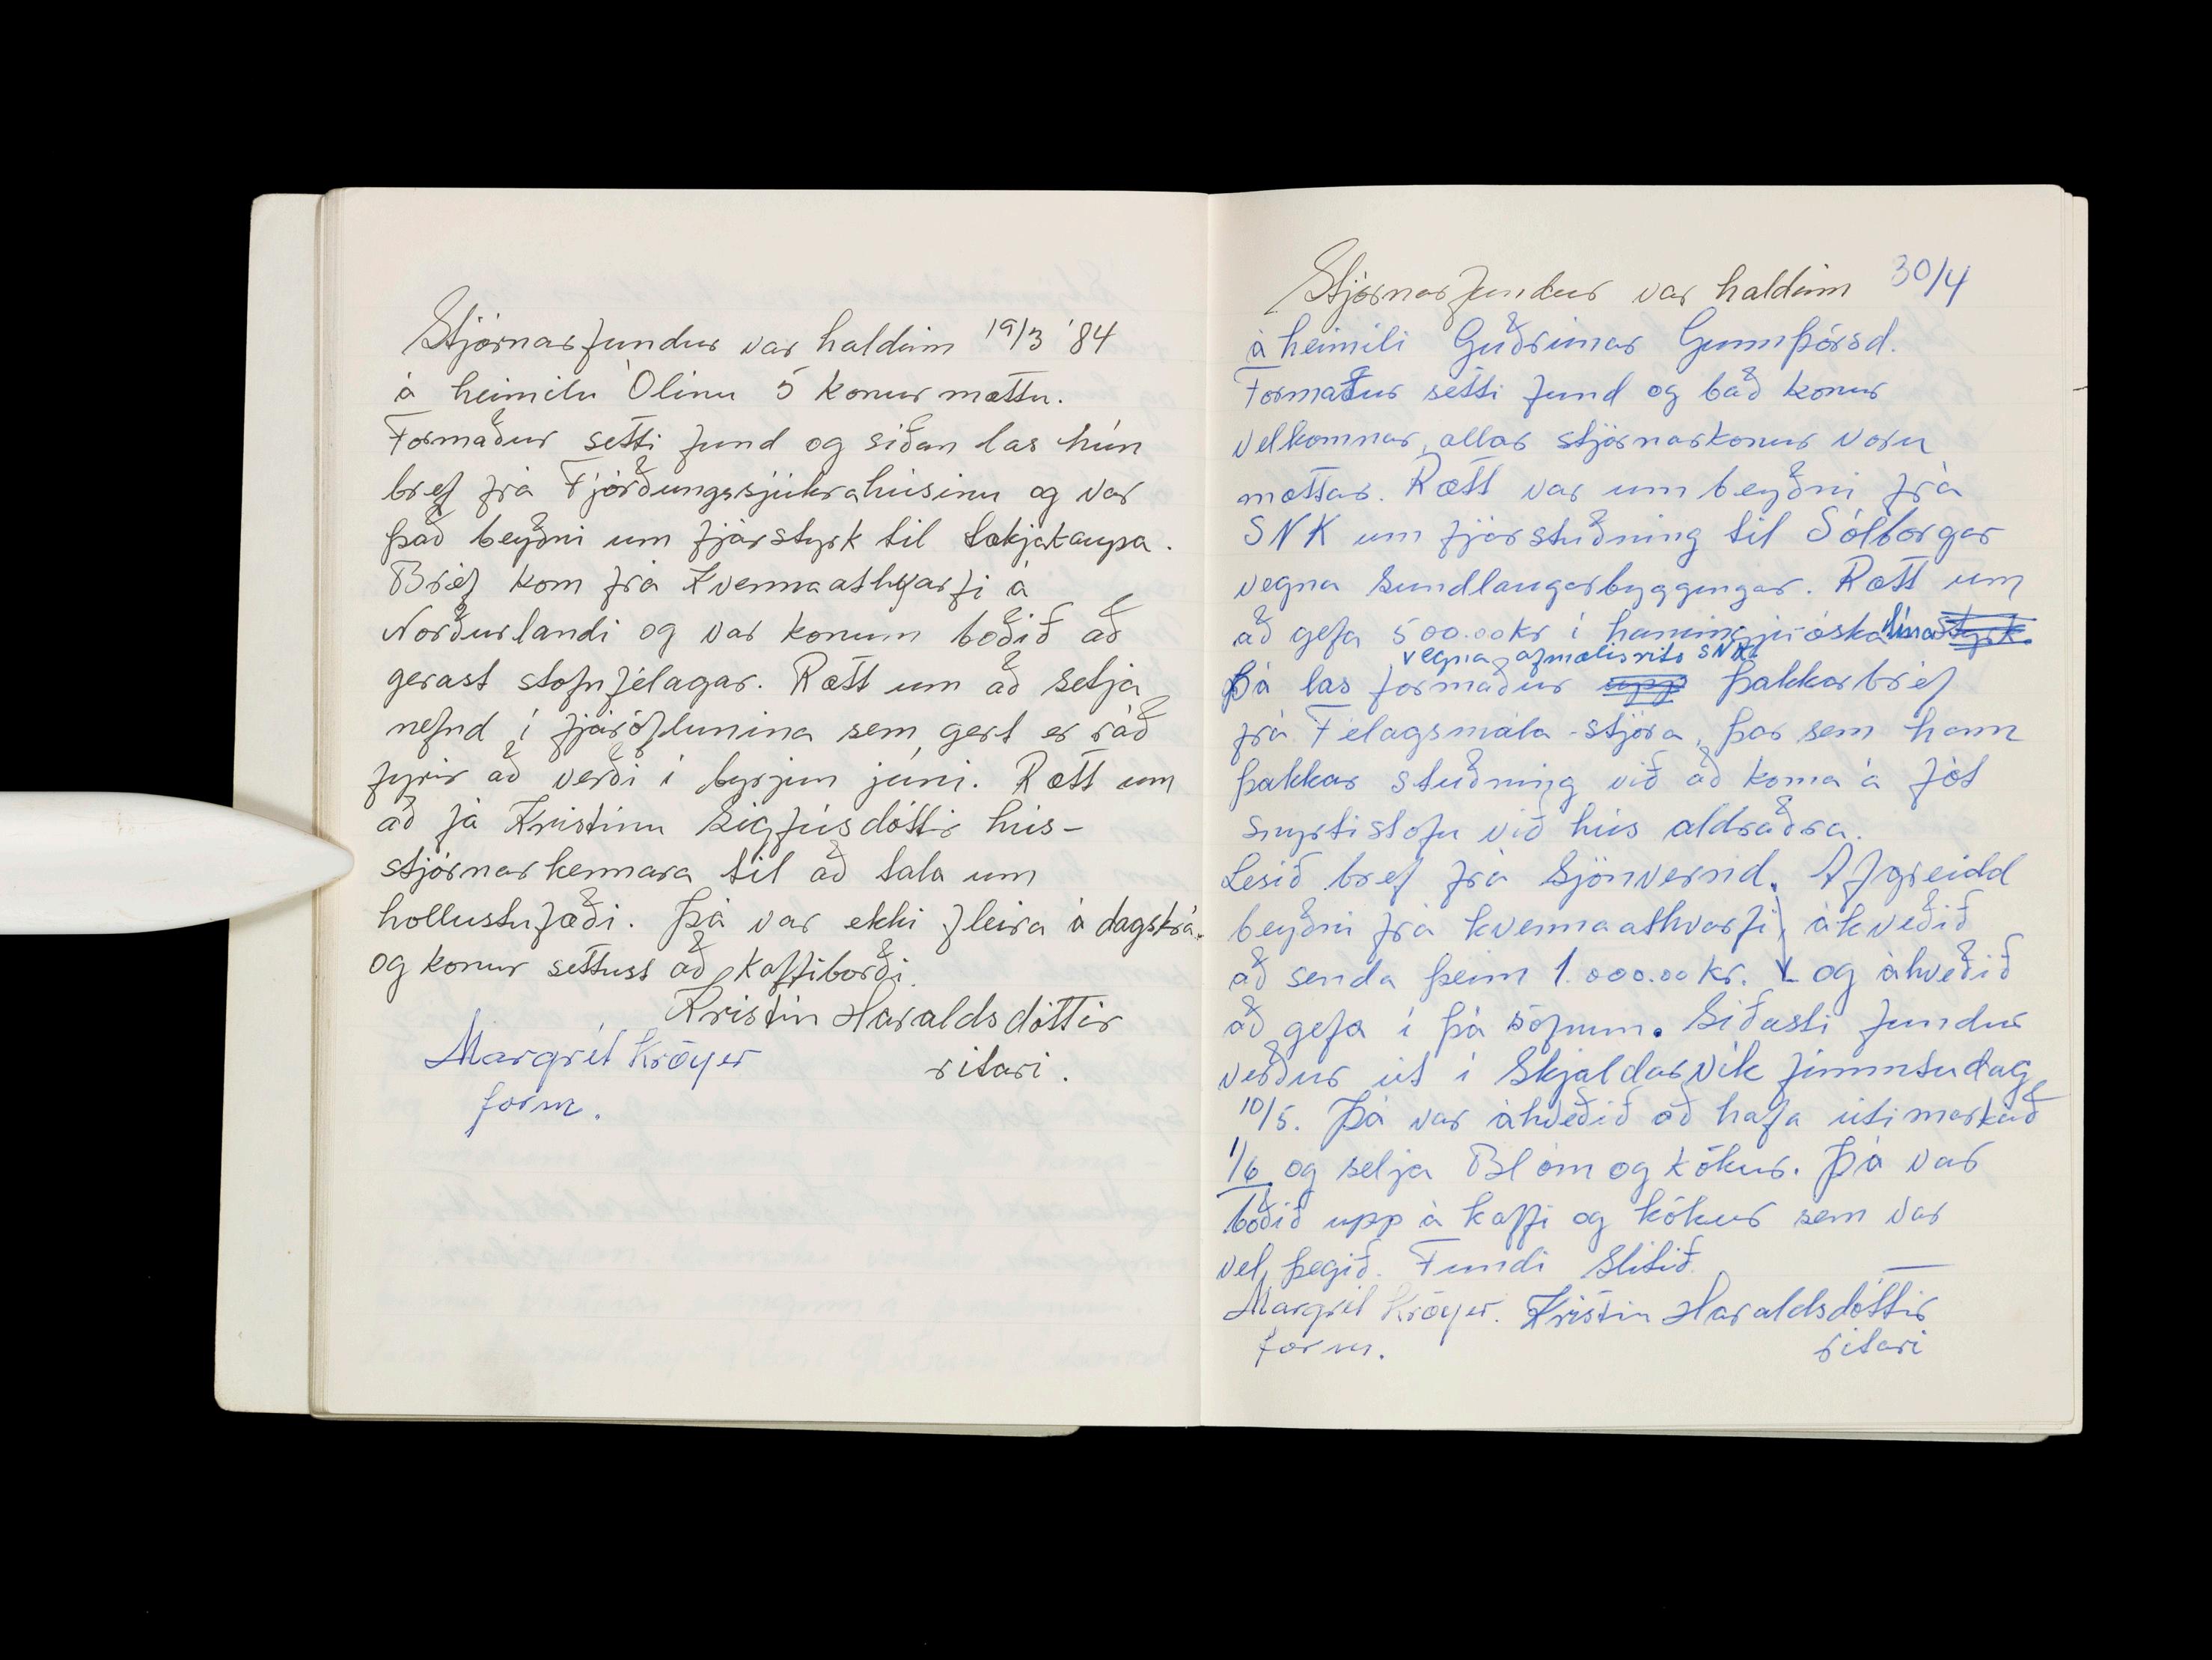 Stjórnarfundur var haldinn 19/3 '84
á heimilu Ólínu 5 konur mættu.
Formaður setti fund og síðan las hún
bréf frá Fjórðungssjúkrahúsinu og var
það beyðni um fjárstyrk til tækjakaupa.
Bréf kom frá Kvennaathvarfi á
Norðurlandi og var konum boðið að
gerast stofnfélagar. Rætt um að setja
nefnd í fjáröflunina sem gert er ráð
fyrir að verði í byrjun júni. Rætt um
að fá Kristínu Sigfúsdóttir hús-
stjórnarkennara til að tala um
hollustufæði. Þá var ekki fleira á dagskrá.
og konur settust að kaffiborði.
Kristín Haraldsdóttir
ritari.
Margrét Kröyer
form.
Stjórnarfundur var haldinn 30/4
á heimili Guðrúnar Gunnþórsd.
Formaður setti fund og bað konur
velkomnar, allar stjórnarkonur voru
mættar. Rætt var um beyðni frá
SNK um fjárstuðning til Sólborgar
vegna Sundlaugarbyggingar. Rætt um
að gefa 500.00 kr í hamingjuóskalínu styrk.
vegna afmælisrits SNK
Þá las formaður upp þakkarbréf
frá Félagsmála-stjóra, þar sem hann
þakkar stuðning við að koma á fót
snyrtistofu við hús aldraðra.
Lesið bréf frá Sjónvernd. Afgreidd
beyðni frá kvennaathvarfi, ákveðið
að senda þeim 1.000.00 kr. og ákveðið
að gefa í þá söfnun. Síðasti fundur
verður út í Skjaldarvík fimmtudag
10/5. Þá var ákveðið að hafa útimarkað
1/6 og selja Blóm og kökur. Þá var
boðið upp á kaffi og kökur sem var
vel þegið. Fundi slitið.
Margrét Kröyer. Kristín Haraldsdóttir
form. ritari